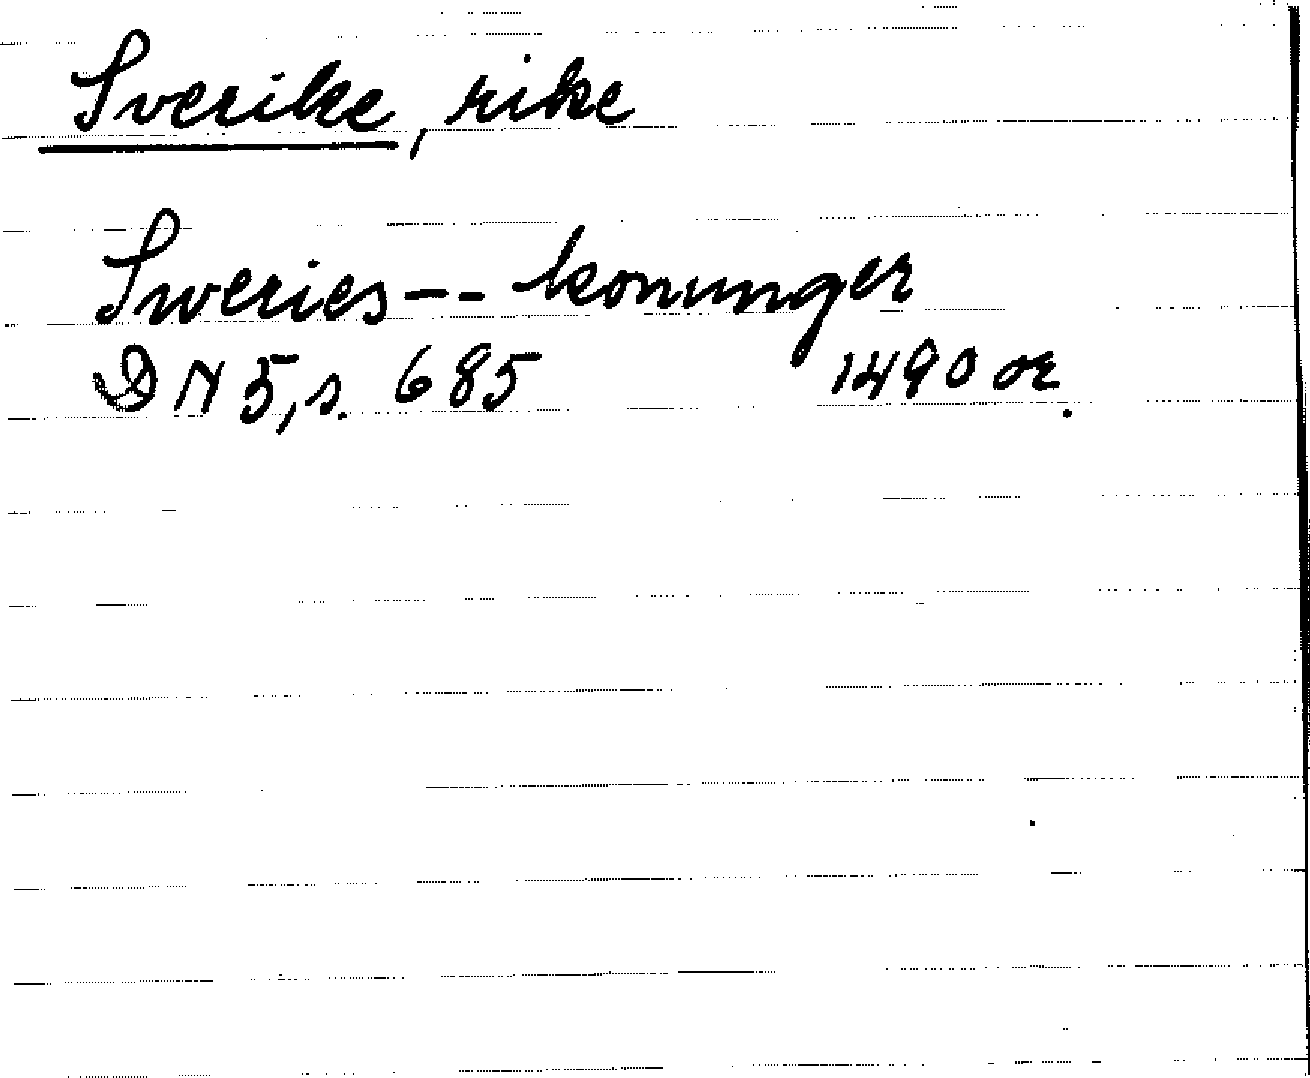 Sverike, rike
Sweries-- konunger
DN 5, s. 685 1490 or.